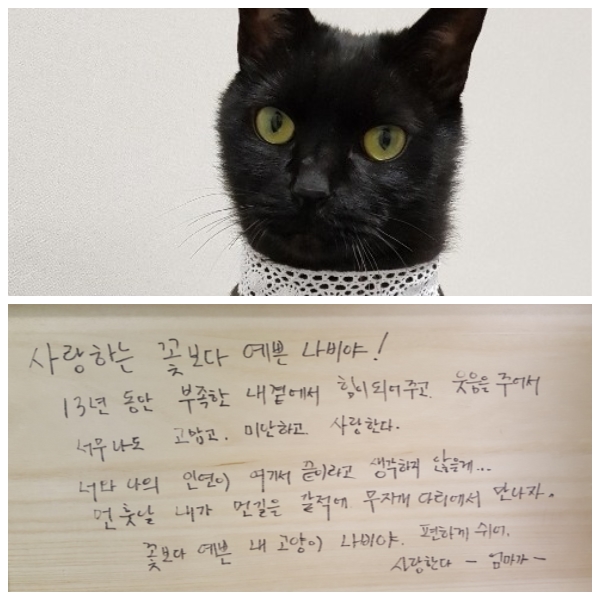 사랑하는 꽃보다 예쁜 나비야!
13년 동안 부족한 내곁에서 힘이되어주고. 웃음을 주어서
너무나도 고맙고. 미안하고 사랑한다.
너와 나의 인연이 여기서 끝이라고 생각하지 않을게...
먼훗날 내가 먼길을 갈적에 무지개 다리에서 만나자.
꽃보다 예쁜 내 고양이 나비야. 편하게 쉬어.
사랑한다 - 엄마가 -